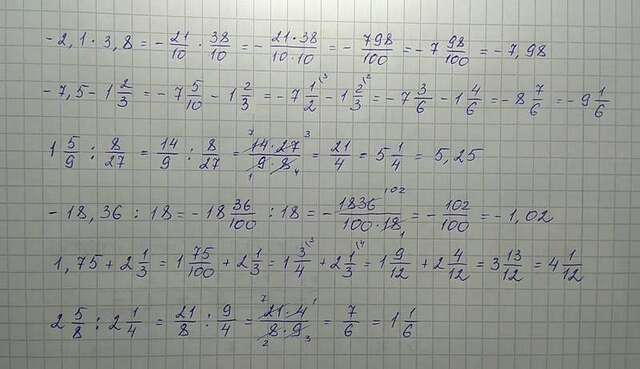 -2,1·3,8 = -21/10 · 38/10 = -21·38/10·10 = -798/100 = -7 98/100 = -7,98
-7,5-1 2/3 = -7 5/10 -1 2/3 = -7 1/2 \3 -1 2/3 \2 = -7 3/6 -1 4/6 = -8 7/6 = -9 1/6
1 5/9 : 8/27 = 14/9 : 8/27 = 7 14·27 3/1 9·8 4 = 21/4 = 5 1/4 = 5,25
-18,36 : 18 = -18 36/100 : 18 = -1836 102/100·18 1 = -102/100 = -1,02
1,75+2 1/3 = 1 75/100 + 2 1/3 = 1 3/4 \3 + 2 1/3 \4 = 1 9/12 + 2 4/12 = 3 13/12 = 4 1/12
2 5/8 : 2 1/4 = 21/8 : 9/4 = 7 21·4 1/2 8·9 3 = 7/6 = 1 1/6